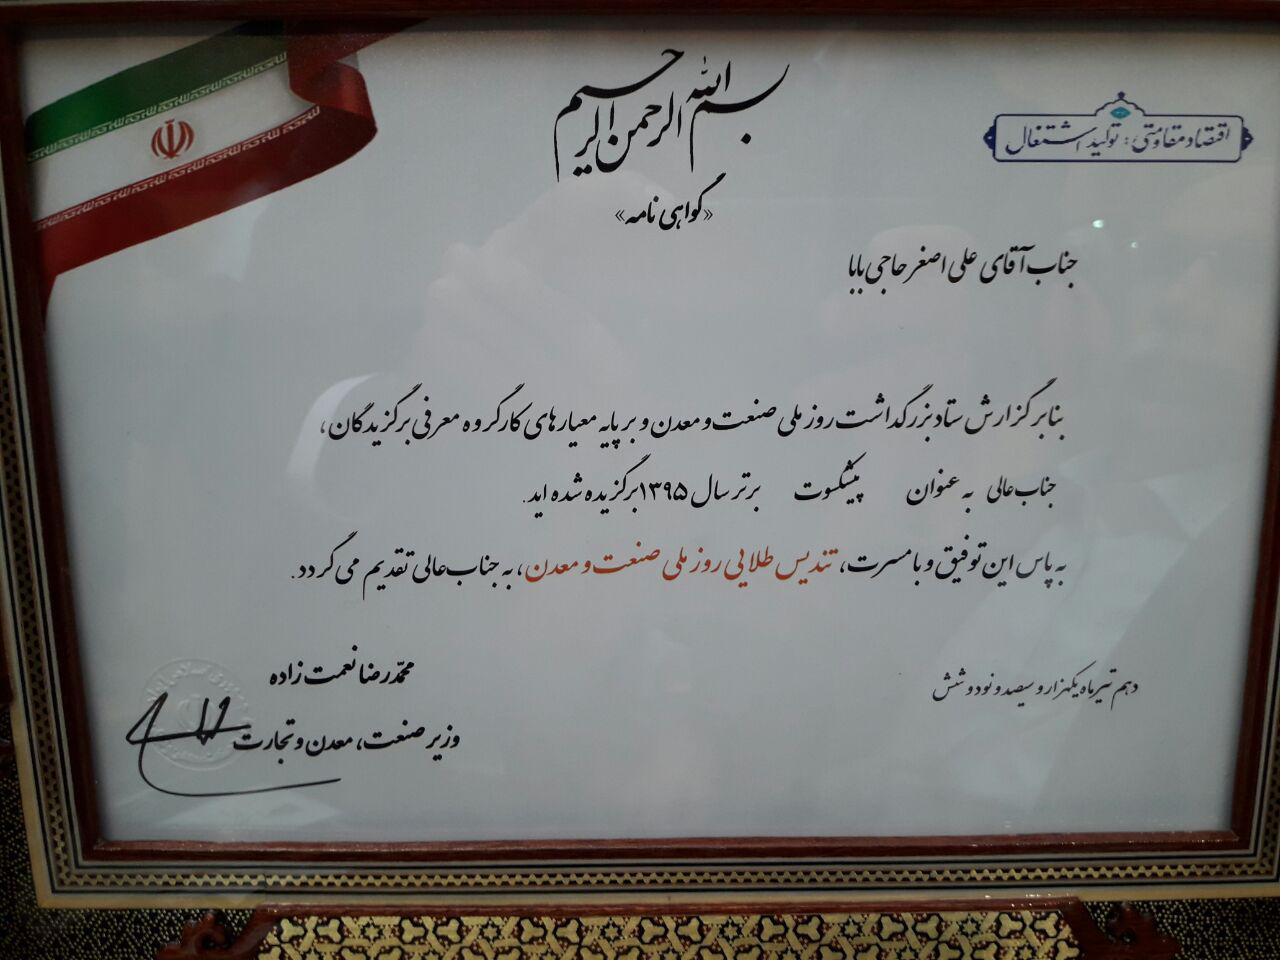 بسم الله الرحمن الرحیم
اقتصاد مقاومتی؛ تولید اشتغال
«گواهی نامه»
جناب آقای علی اصغر حاجی بابا
بنابر گزارش ستاد بزرگداشت روز ملی صنعت و معدن و بر پایه معیارهای کارگروه معرفی برگزیدگان،
جناب عالی به عنوان پیشکسوت برتر سال ۱۳۹۵ برگزیده شده اید.
به پاس این توفیق و با مسرت، تندیس طلایی روز ملی صنعت و معدن، به جناب عالی تقدیم می گردد.
محمدرضا نعمت زاده
وزیر صنعت، معدن و تجارت
دهم تیر ماه یکهزار و سیصد و نود و شش